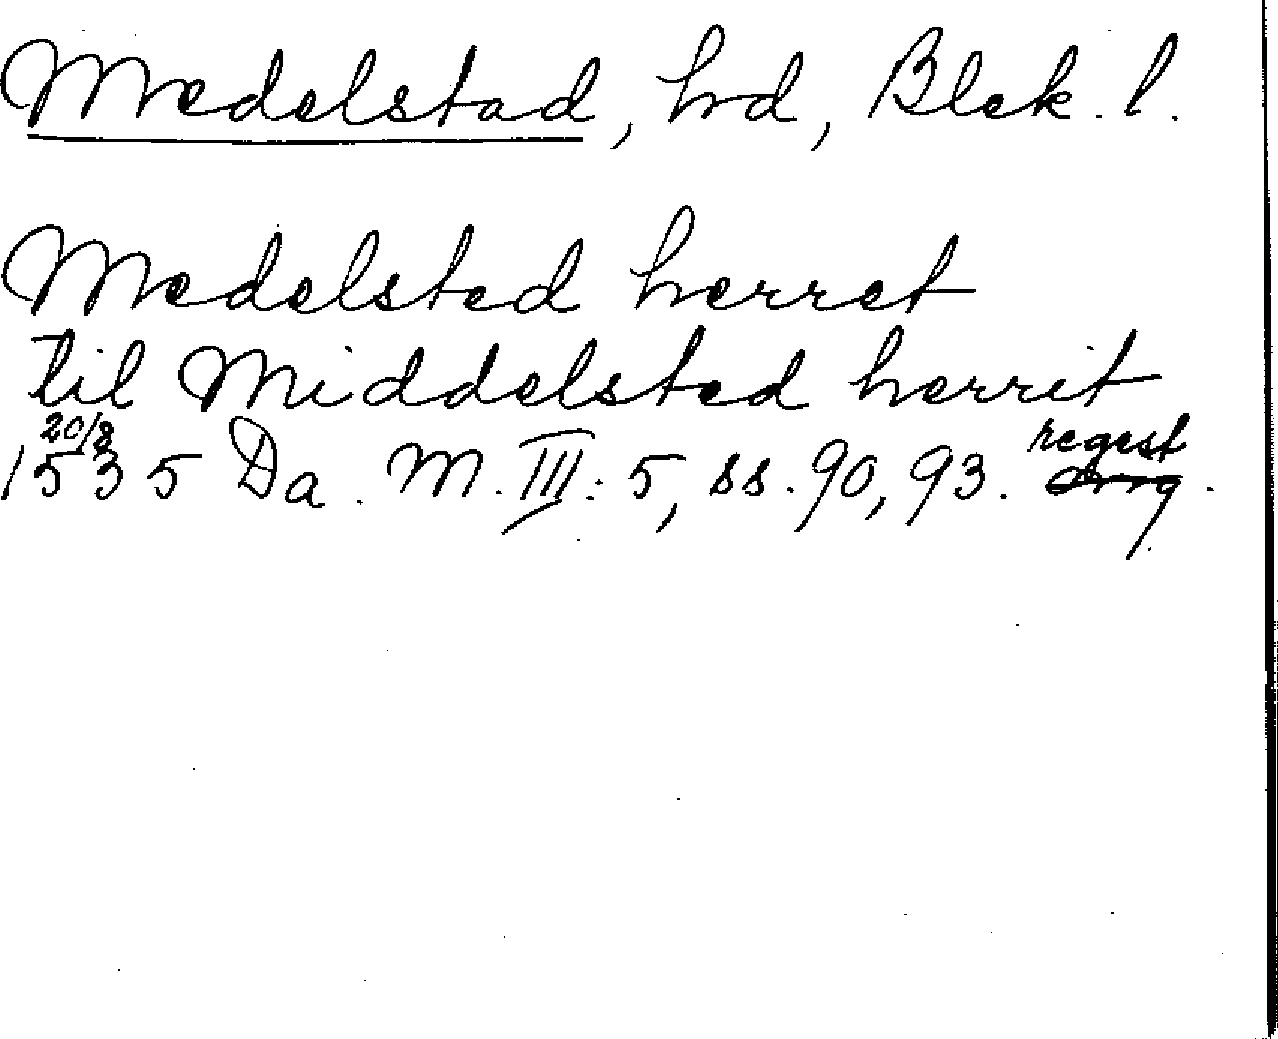 Medelstad, hd, Blek. l.
Medelsted herret
til Middelsted herrit
20/8
1535 Da. M. III: 5, ss. 90, 93. regest